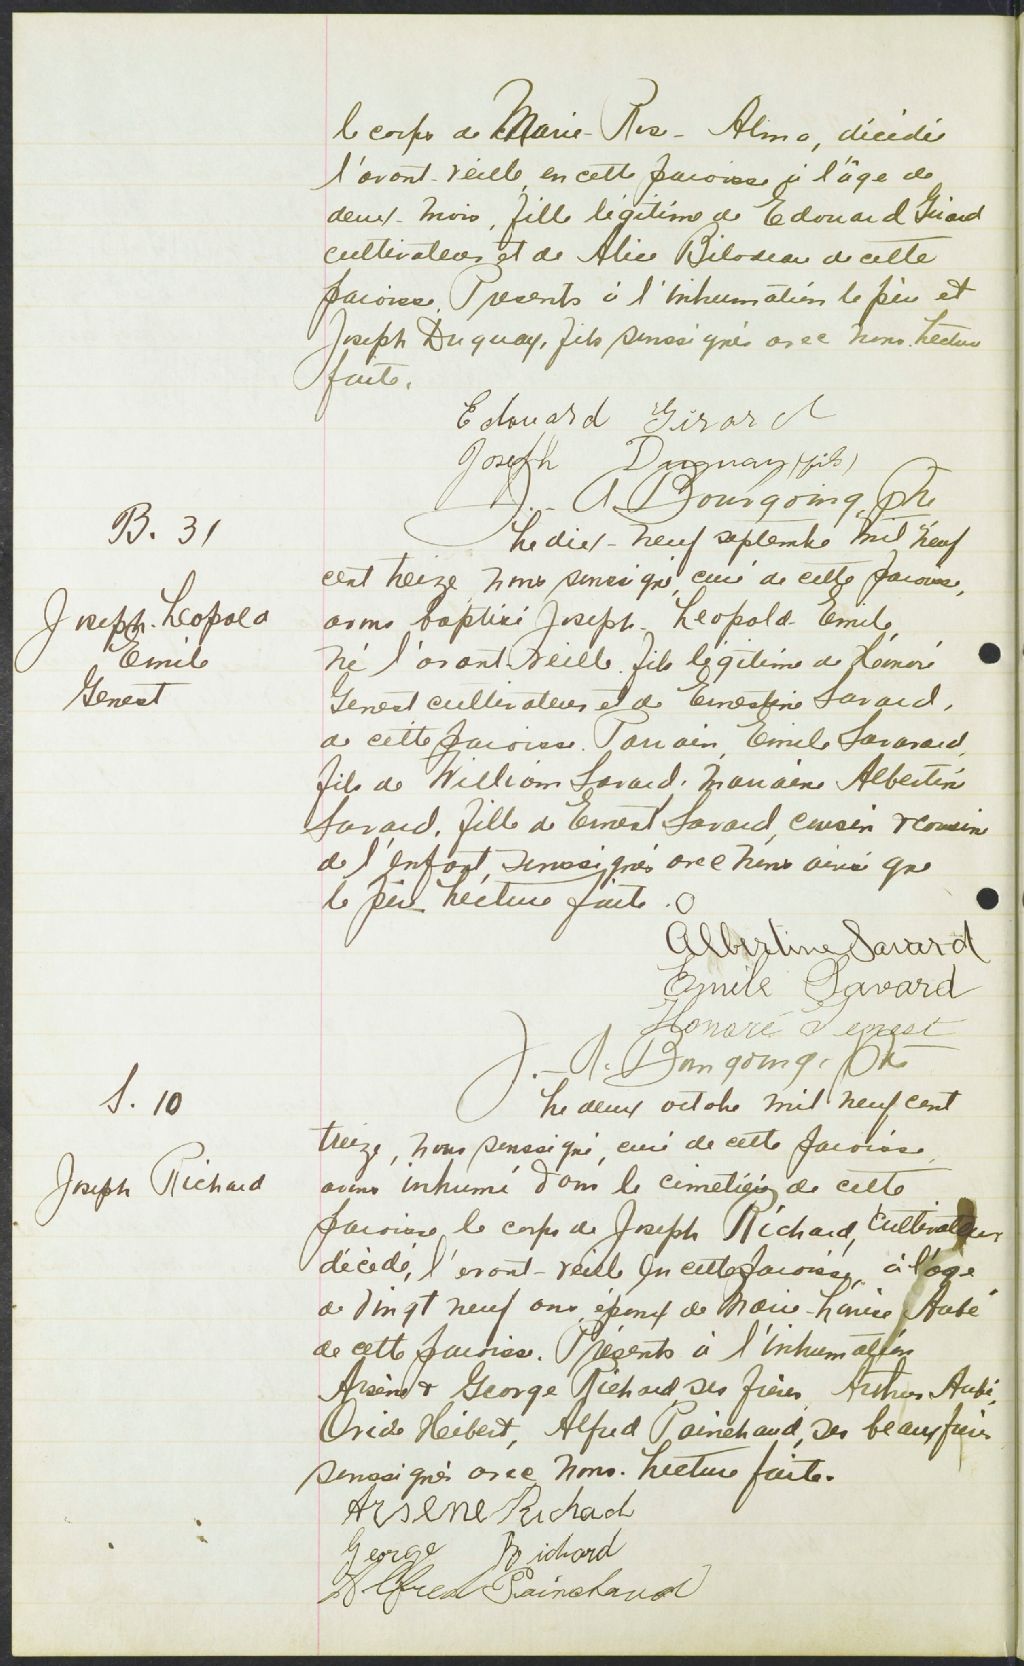 le corps de Marie-Rose-Alma, décédée
l'avant-veille, en cette paroisse à l'âge de
deux-mois, fille légitime de Edouard Girard
cultivateur et de Alice Bilodeau de cette
paroisse. Présents à l'inhumation le père et
Joseph Duguay, fils soussignés avec nous. Lecture
faite.
Edouard Girard
Joseph Duguay (fils)
J.-A. Bourgoing, Ptre
B. 31
Joseph-Léopold
Emile
Genest
Le dix-neuf septembre mil neuf
cent treize, nous soussigné, curé de cette paroisse,
avons baptisé Joseph-Léopold-Emile,
né l'avant-veille, fils légitime de Honoré
Genest cultivateur et de Ernestine Savard,
de cette paroisse. Parrain, Emile Savarard,
fils de William Savard. Marraine Albertine
Savard, fille de Ernest Savard, cousin & cousine
de l'enfant, soussignés avec nous ainsi que
le père. Lecture faite.
Albertine Savard
Emile Savard
Honoré Genest
J.-A. Bourgoing, Ptre
S. 10
Joseph Richard
Le deux octobre mil neuf cent
treize, nous soussigné, curé de cette paroisse,
avons inhumé dans le cimetière de cette
paroisse le corps de Joseph Richard, cultivateur
décédé, l'avant-veille en cette paroisse, à l'âge
de vingt neuf ans, époux de Marie-Louise Aubé
de cette paroisse. Présents à l'inhumation
Arsène & George Richard, ses frères, Arthur Aubé,
Ovide Hébert, Alfred Painchaud, ses beaux frères
soussignés avec nous. Lecture faite.
Arsène Richard
George Richard
Alfred Painchaud